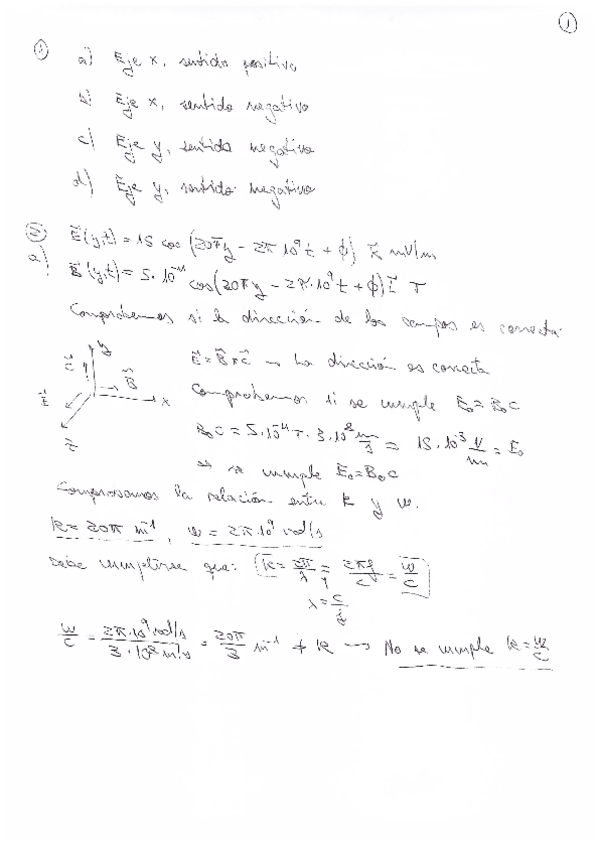 1
1
a) Eje x, sentido positivo
b) Eje x, sentido negativo
c) Eje y, sentido negativo
d) Eje y, sentido negativo
2
a) E⃗(y,t) = 15 cos (20πy - 2π 10⁹t + ϕ) k⃗ mV/m
B⃗(y,t) = 5·10⁻¹¹ cos(20πy - 2π·10⁹t + ϕ) i⃗ T
Comprobemos si la dirección de los campos es correcta:
y
c⃗
B⃗
E⃗
x
z
E⃗ = B⃗×c⃗ → La dirección es correcta
Comprobemos si se cumple E₀ = B₀c
B₀c = 5·10⁻¹¹ T · 3·10⁸ m/s = 15·10⁻³ V/m = E₀
⇒ se cumple E₀ = B₀c
Comprobamos la relación entre k y w.
k = 20π m⁻¹, w = 2π·10⁹ rad/s
Debe cumplirse que: k = 2π/λ = 2πf/c = w/c
λ = c/f
w/c = 2π·10⁹ rad/s / 3·10⁸ m/s = 20π/3 m⁻¹ ≠ k → No se cumple k = w/c